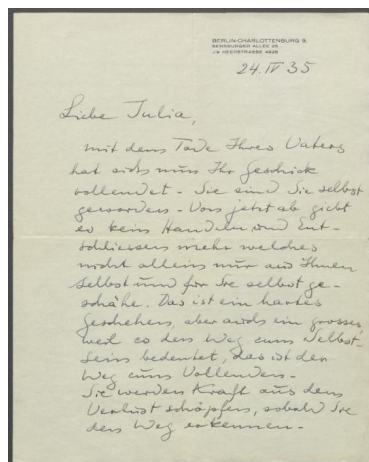 BERLIN-CHARLOTTENBURG 9,
SENSBURGER ALLEE 25
J 9 HEERSTRASSE 4928
24. IV 35
Liebe Julia,
mit dem Tode Ihres Vaters
hat sich nun Ihr Geschick
vollendet - Sie sind Sie selbst
geworden - Von jetzt ab giebt
es kein Handeln und Ent-
schliessen mehr welches
nicht allein nur aus Ihnen
selbst und für Sie selbst ge-
schähe. Das ist ein hartes
Geschehen, aber auch ein grosses,
weil es den Weg zum Selbst-
sein bedeutet, das ist der
Weg zum Vollenden -
Sie werden Kraft aus dem
Verlust schöpfen, sobald Sie
den Weg erkennen -